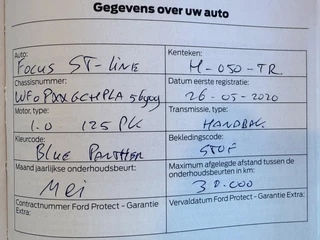 Gegevens over uw auto
Auto: Kenteken:
FOCUS ST-LINE H-050-TR
Chassisnummer: Datum eerste registratie:
26-05-2020
Motor, type: Transmissie, type:
1.0 125 PK HANDBAK
Kleurcode: Bekledingscode:
BLUE PANTHER STOF
Maand jaarlijkse onderhoudsbeurt: Maximum afgelegde afstand tussen de onderhoudsbeurten in km:
MEI 30.000
Contractnummer Ford Protect - Garantie Extra: Vervaldatum Ford Protect - Garantie Extra: